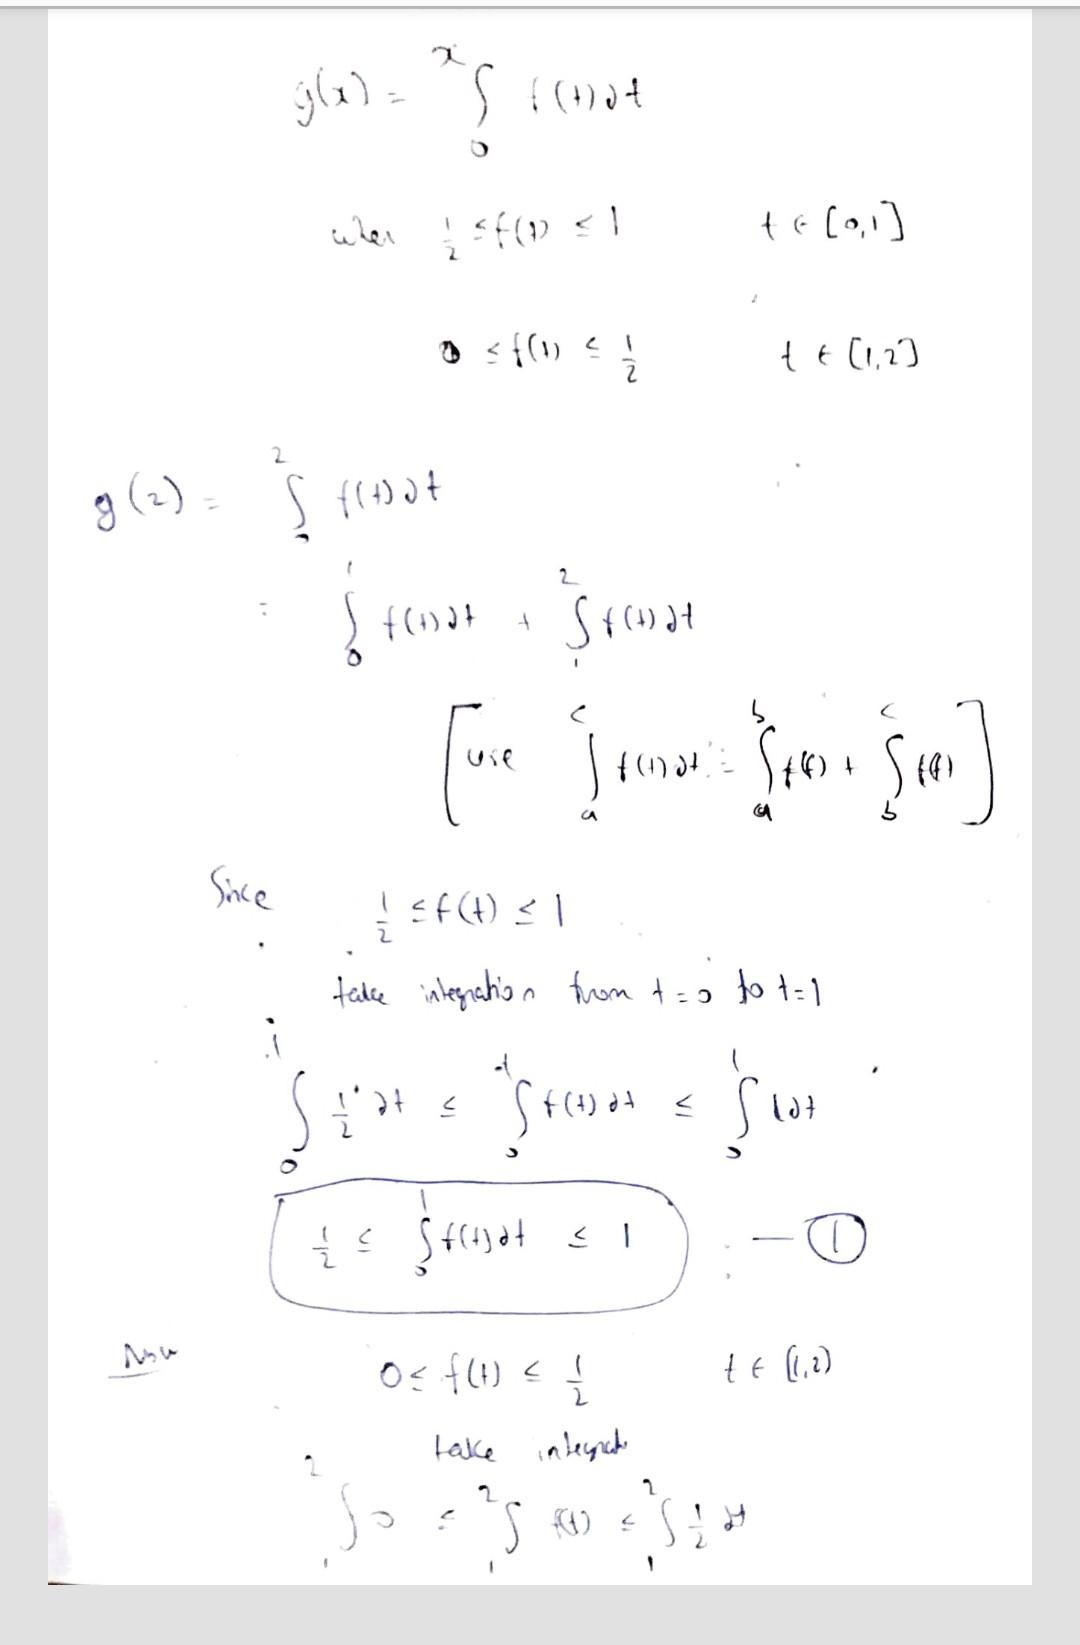 g(x) = ∫₀ˣ f(t)∂t
when 1/2 ≤ f(t) ≤ 1 t ∈ [0,1]
0 ≤ f(t) ≤ 1/2 t ∈ (1,2]
g(2) = ∫₀² f(t)∂t
= ∫₀¹ f(t)∂t + ∫₁² f(t)∂t
[use ∫ₐᶜ f(t)∂t = ∫ₐᵇ f(t) + ∫ᵇᶜ f(t)]
Since 1/2 ≤ f(t) ≤ 1
take integration from t=0 to t=1
∫₀¹ 1/2 ∂t ≤ ∫₀¹ f(t)∂t ≤ ∫₀¹ 1∂t
1/2 ≤ ∫₀¹ f(t)∂t ≤ 1 — ①
Now 0 ≤ f(t) ≤ 1/2 t ∈ (1,2)
take
∫₁² 0 ≤ ∫₁² f(t) ≤ ∫₁² 1/2 ∂t